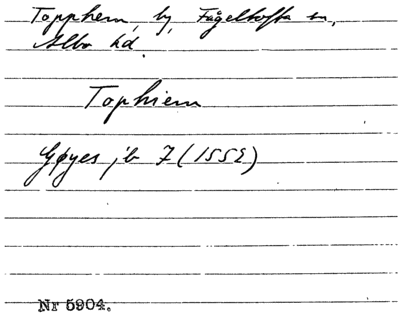 Topphem, by, Fågeltofta sn,
Albo hd.
Tophiem
Gøyes jb 7 (1552)
Nr 5904.